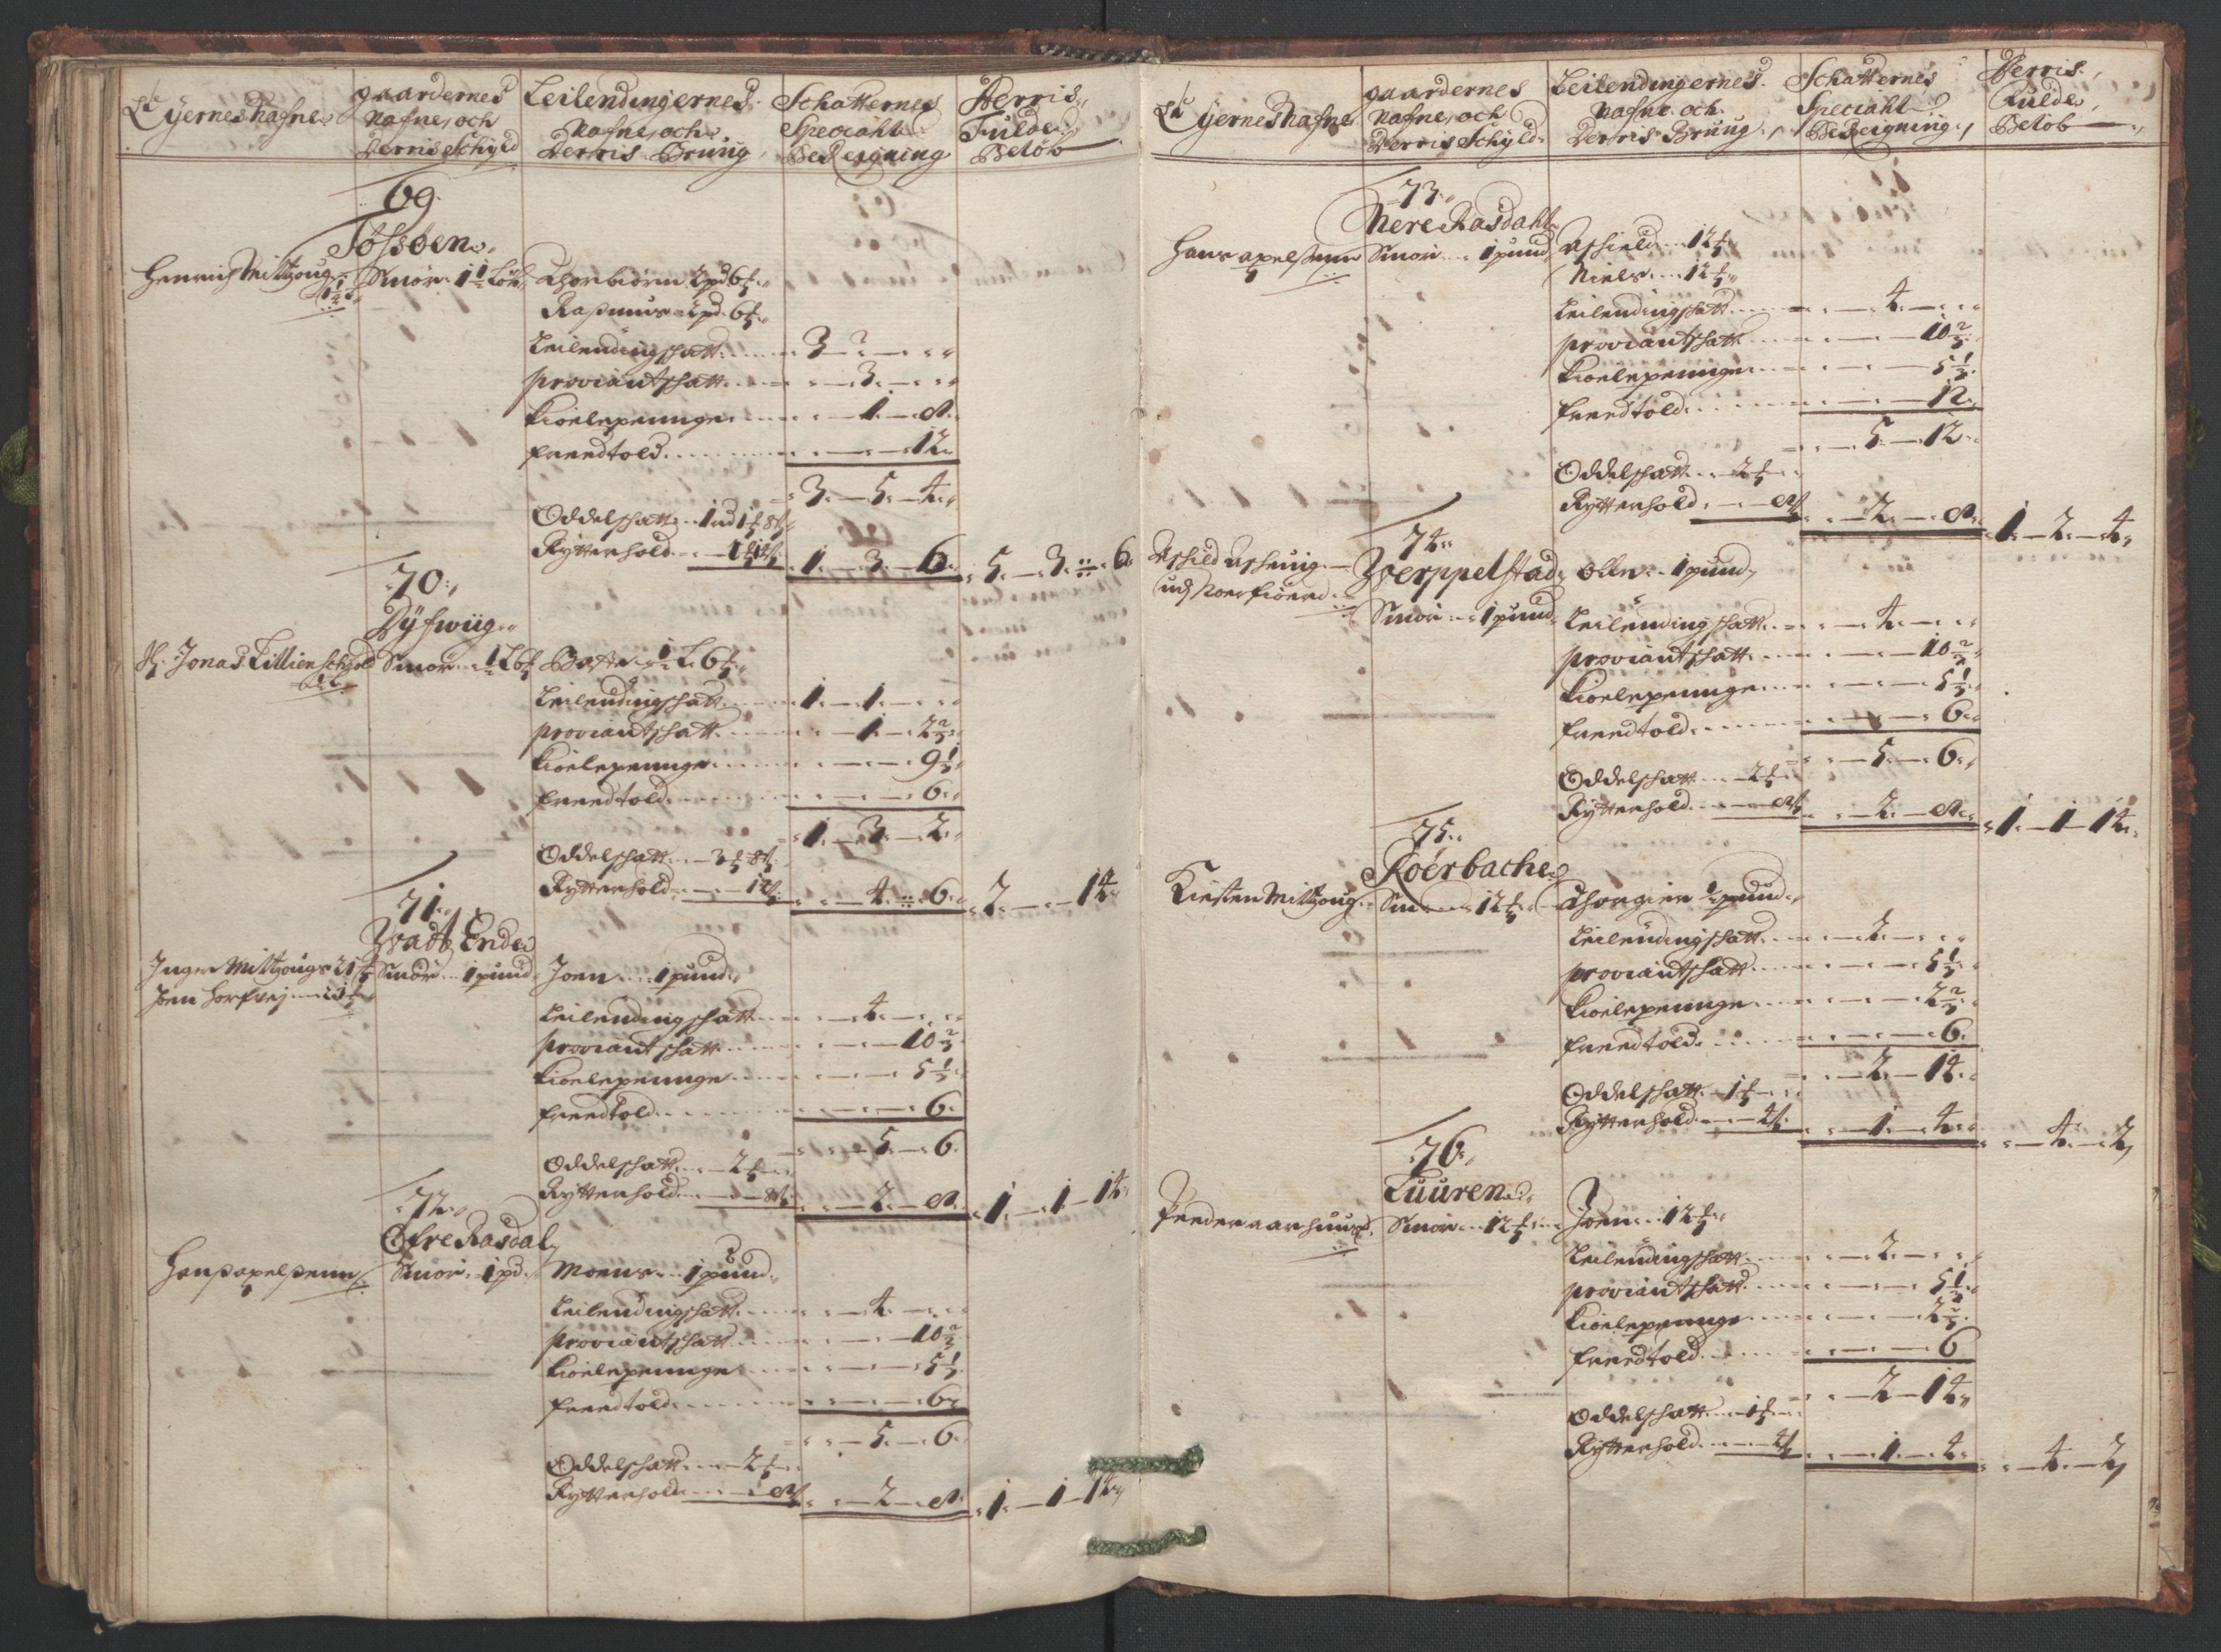 Eyernes Nafne
gaardernes Nafne, och Derris Schyld
Leilendingernes Nafne, och Derris Brüüg
Schatternes Speciahl Beregning
Derris Fulde Beløb
69.
Tøssøen
Henrich Miltzoug
Smör 1½ Löb
Thorbiörn 2 pd 6
Rasmus 2 pd 6
Leilendingschatt 3
proviantschatt 3
kiørlepennge 1 8
kreedtold 12
3 5 4
Oddelschatt
Rytterhold 1 3 6 5 3 6
70.
Dyfwiig
Hr. Jonas Lillienschiold
Smör
Leilendingschatt 1 1
proviantschatt 1 2 2/3
kiørlepennge 9 1/3
kreedtold 6
1 3 2
Oddelschatt 3 8
Rytterhold 12 4 6 2 14
71.
Smör 1 pund
Joen 1 pund
Inger Miltzougs
Leilendingschatt 4
proviantschatt 10 2/3
kiørlepennge 5 1/3
kreedtold 6
5 6
Oddelschatt 2
Rytterhold 8 2 8 1 1 14
72.
Øfre Rasdal
Hans apelsenn
Smör 1 pd
Moens 1 pund
Leilendingschatt 4
proviantschatt 10 2/3
kiørlepennge 5 1/3
kreedtold 6
5 6
Oddelschatt 2
Rytterhold 8 2 8 1 1 14
Eyernes Nafne
gaardernes Nafne, och Derris Schyld
Leilendingernes Nafne och Derris Brüüg
Schatternes Speciahl Beregning
Derris Fulde Beløb
73.
Nere Rasdahl
Hans apelsenn
Smör 1 pund
Niels 12
Leilendingschatt 4
proviantschatt 10 2/3
kiørlepennge 5 1/3
kreedtold 12
5 12
Oddelschatt 2
Rytterhold 8 2 8 1 2 4
74.
Werppelstad
Smör 1 pund
Olle 1 pund
Leilendingschatt 4
proviantschatt 10 2/3
kiørlepennge 5 1/3
kreedtold 6
5 6
Oddelschatt 2
Rytterhold 8 2 8 1 1 14
75.
Roerbache
Kirsten Miltzoug
Smör 12
Thorgier ½ pund
Leilendingschatt 2
proviantschatt 5 1/3
kiørlepennge 2 2/3
kreedtold 6
2 14
Oddelschatt 1
Rytterhold 4 1 4 4 2
76.
Tuuren
Peder aarhuus
Smör 12
Joen 12
Leilendingschatt 2
proviantschatt 5 1/3
kiørlepennge 2 2/3
kreedtold 6
2 14
Oddelschatt 1
Rytterhold 4 1 4 4 2